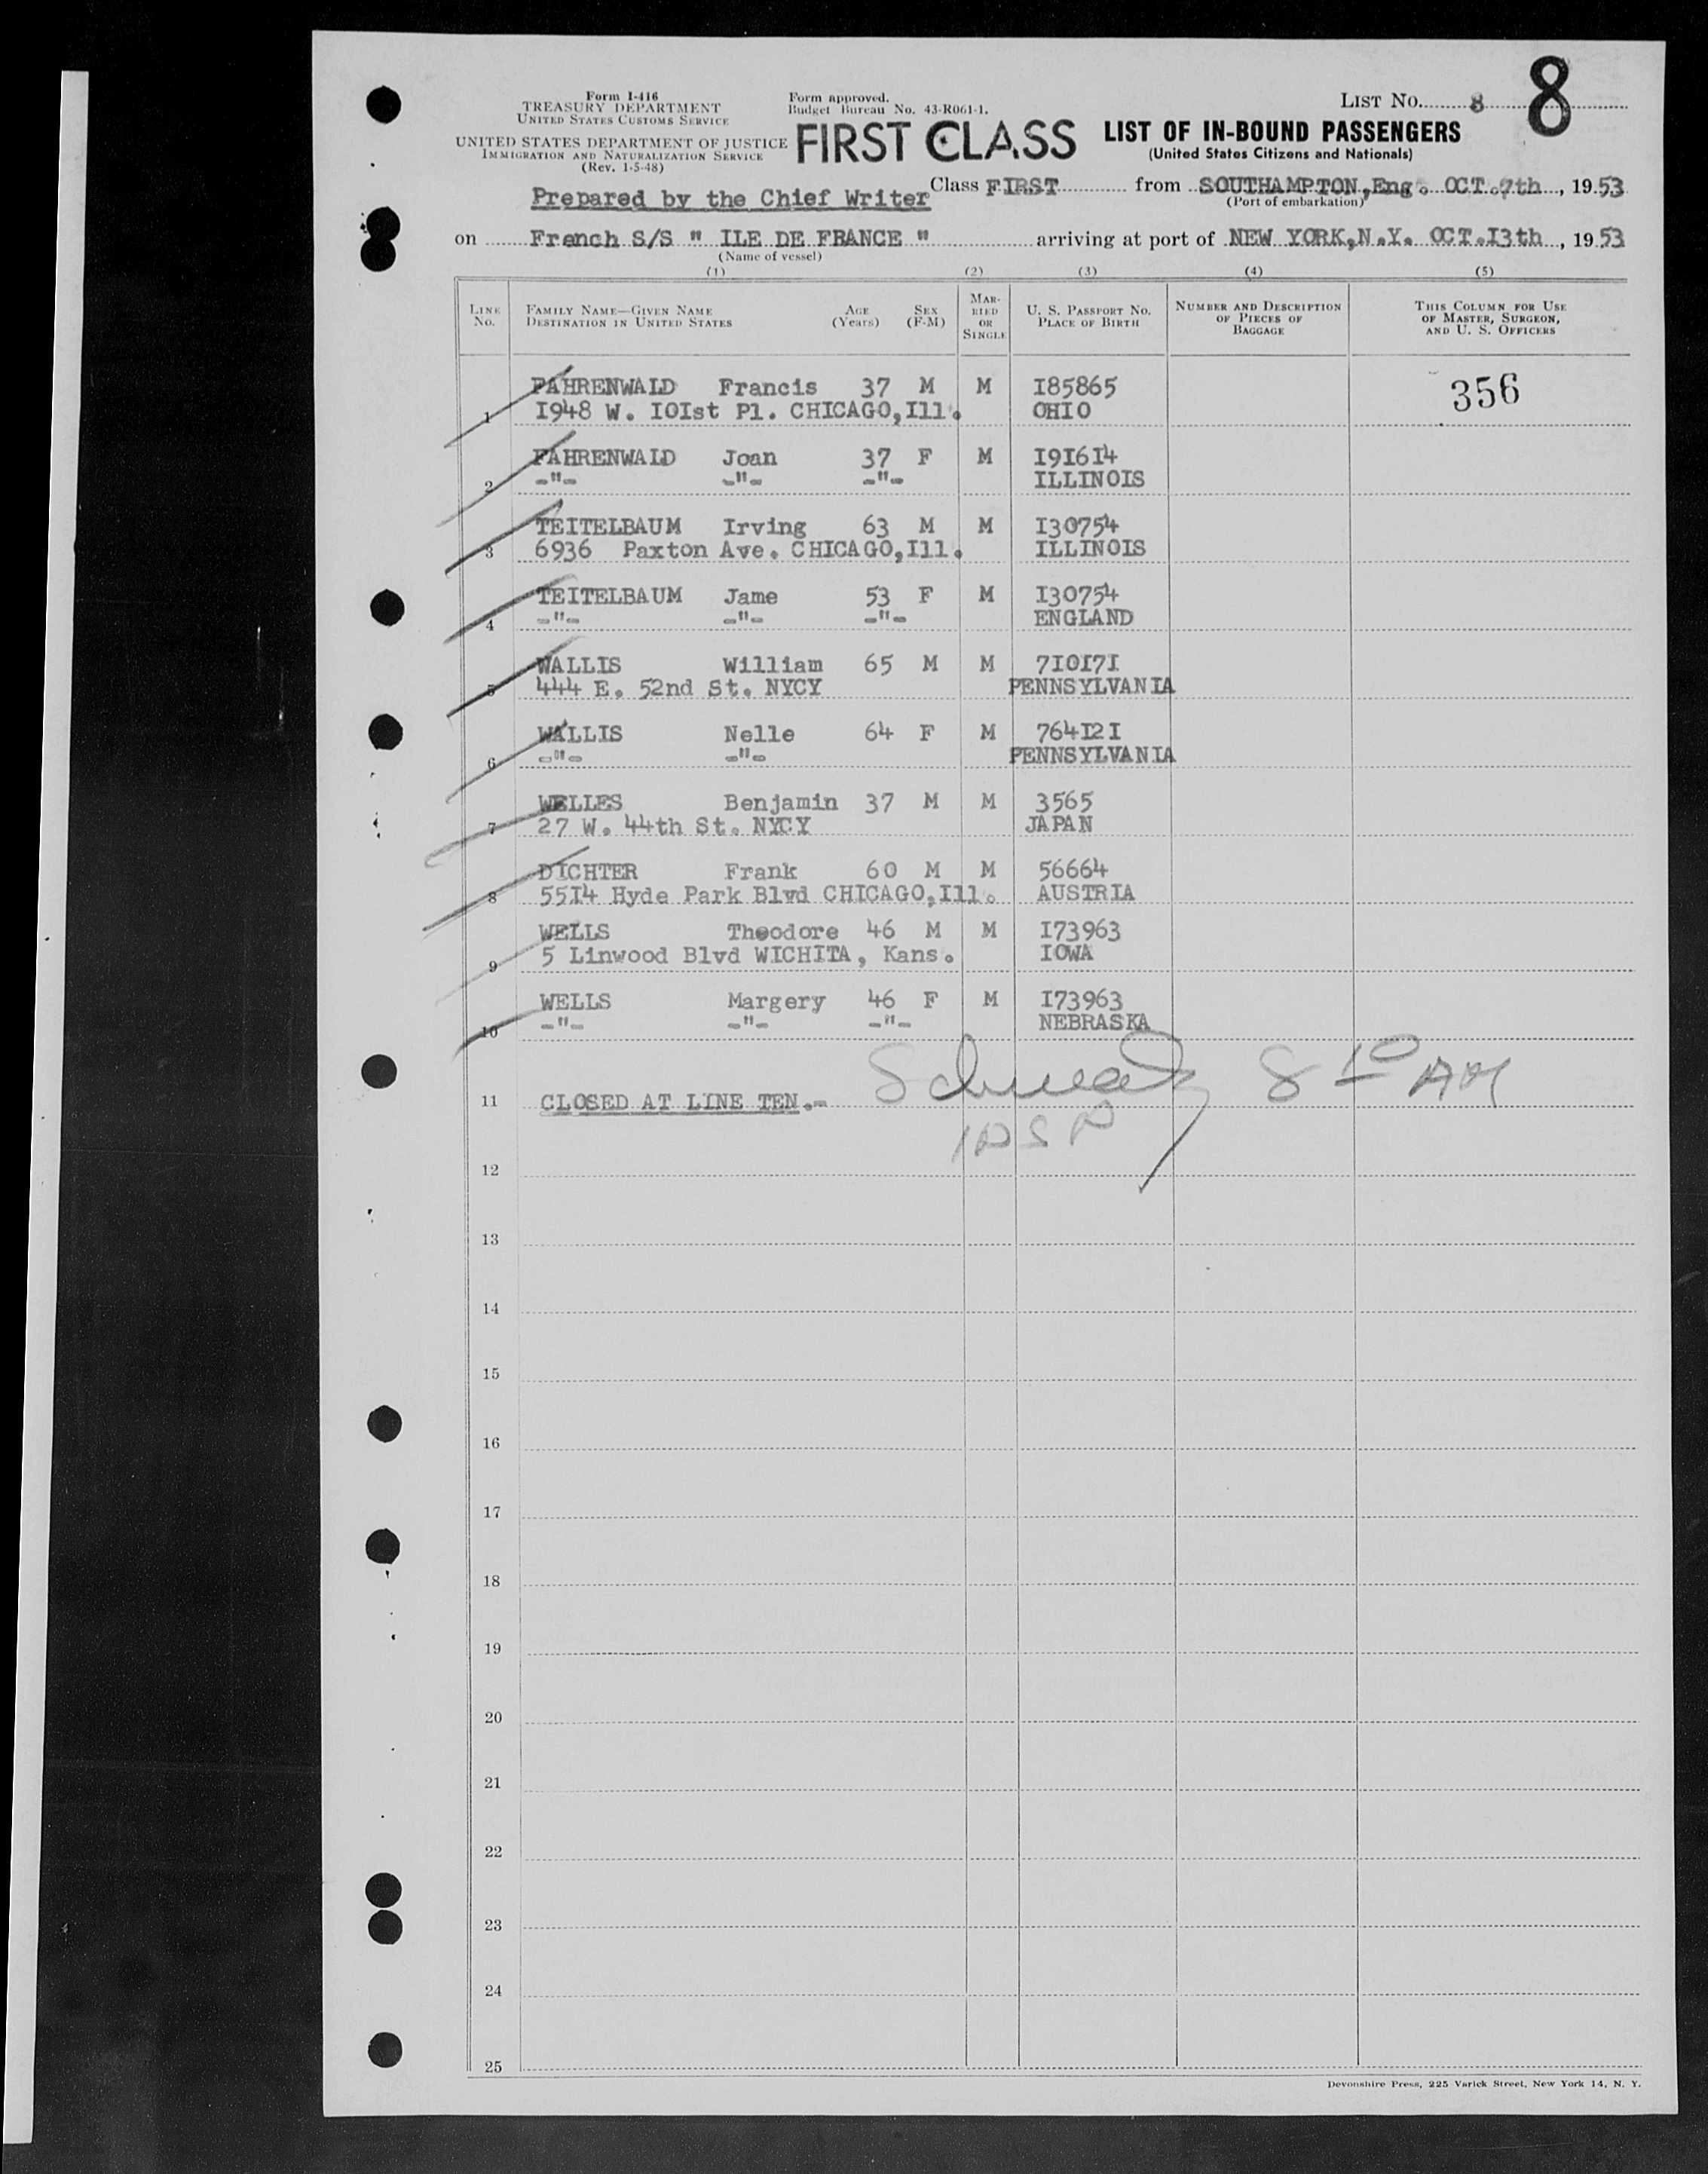 Form I-416
TREASURY DEPARTMENT
UNITED STATES CUSTOMS SERVICE
UNITED STATES DEPARTMENT OF JUSTICE
IMMIGRATION AND NATURALIZATION SERVICE
(Rev. 1-5-48)
Form approved.
Budget Bureau No. 43-R061-1.
FIRST CLASS
LIST NO. 8
8
LIST OF IN-BOUND PASSENGERS
(United States Citizens and Nationals)
Prepared by the Chief Writer Class FIRST from SOUTHAMPTON,Eng. OCT.7th, 1953
(Port of embarkation)
on French S/S " ILE DE FRANCE " arriving at port of NEW YORK,N.Y. OCT.I3th, 1953
(Name of vessel)
(1) (2) (3) (4) (5)
LINE No. FAMILY NAME—GIVEN NAME DESTINATION IN UNITED STATES AGE (Years) SEX (F-M) MARRIED OR SINGLE U. S. PASSPORT NO. PLACE OF BIRTH NUMBER AND DESCRIPTION OF PIECES OF BAGGAGE THIS COLUMN FOR USE OF MASTER, SURGEON, AND U. S. OFFICERS
FAHRENWALD Francis 37 M M I85865 356
1 I948 W. IOIst Pl. CHICAGO,Ill. OHIO
FAHRENWALD Joan 37 F M I9I6I4
2 -"- -"- -"- ILLINOIS
TEITELBAUM Irving 63 M M I30754
3 6936 Paxton Ave. CHICAGO,Ill. ILLINOIS
TEITELBAUM Jame 53 F M I30754
4 -"- -"- -"- ENGLAND
WALLIS William 65 M M 7I0I7I
5 444 E. 52nd St. NYCY PENNSYLVANIA
WALLIS Nelle 64 F M 764I2I
6 -"- -"- PENNSYLVANIA
WELLES Benjamin 37 M M 3565
7 27 W. 44th St. NYCY JAPAN
DICHTER Frank 60 M M 56664
8 55I4 Hyde Park Blvd CHICAGO,Ill. AUSTRIA
WELLS Theodore 46 M M I73963
9 5 Linwood Blvd WICHITA, Kans. IOWA
WELLS Margery 46 F M I73963
10 -"- -"- -"- NEBRASKA
8 10 AM
11 CLOSED AT LINE TEN.-
12
13
14
15
16
17
18
19
20
21
22
23
24
25
Devonshire Press, 225 Varick Street, New York 14, N. Y.